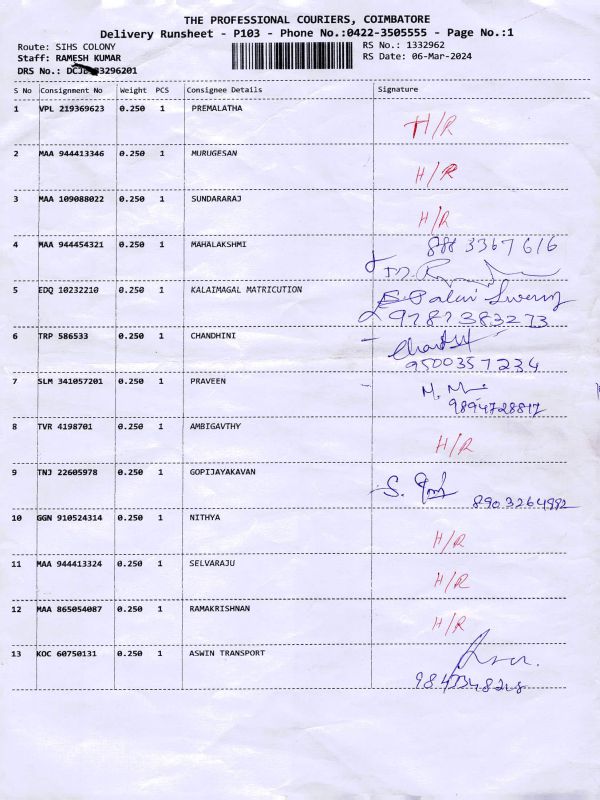 THE PROFESSIONAL COURIERS, COIMBATORE
Delivery Runsheet - P103 - Phone No.:0422-3505555 - Page No.:1
Route: SIHS COLONY RS No.: 1332962
Staff: RAMESH KUMAR RS Date: 06-Mar-2024
DRS No.:
S No Consignment No Weight PCS Consignee Details Signature
1 VPL 219369623 0.250 1 PREMALATHA H/R
2 MAA 944413346 0.250 1 MURUGESAN H/R
3 MAA 109088022 0.250 1 SUNDARARAJ H/R
4 MAA 944454321 0.250 1 MAHALAKSHMI 8883367616
5 EDQ 10232210 0.250 1 KALAIMAGAL MATRICUTION
9787383273
6 TRP 586533 0.250 1 CHANDHINI
9500357234
7 SLM 341057201 0.250 1 PRAVEEN
9894728817
8 TVR 4198701 0.250 1 AMBIGAVTHY H/R
9 TNJ 22605978 0.250 1 GOPIJAYAKAVAN S.
8903264992
10 GGN 910524314 0.250 1 NITHYA H/R
11 MAA 944413324 0.250 1 SELVARAJU H/R
12 MAA 865054087 0.250 1 RAMAKRISHNAN H/R
13 KOC 60750131 0.250 1 ASWIN TRANSPORT